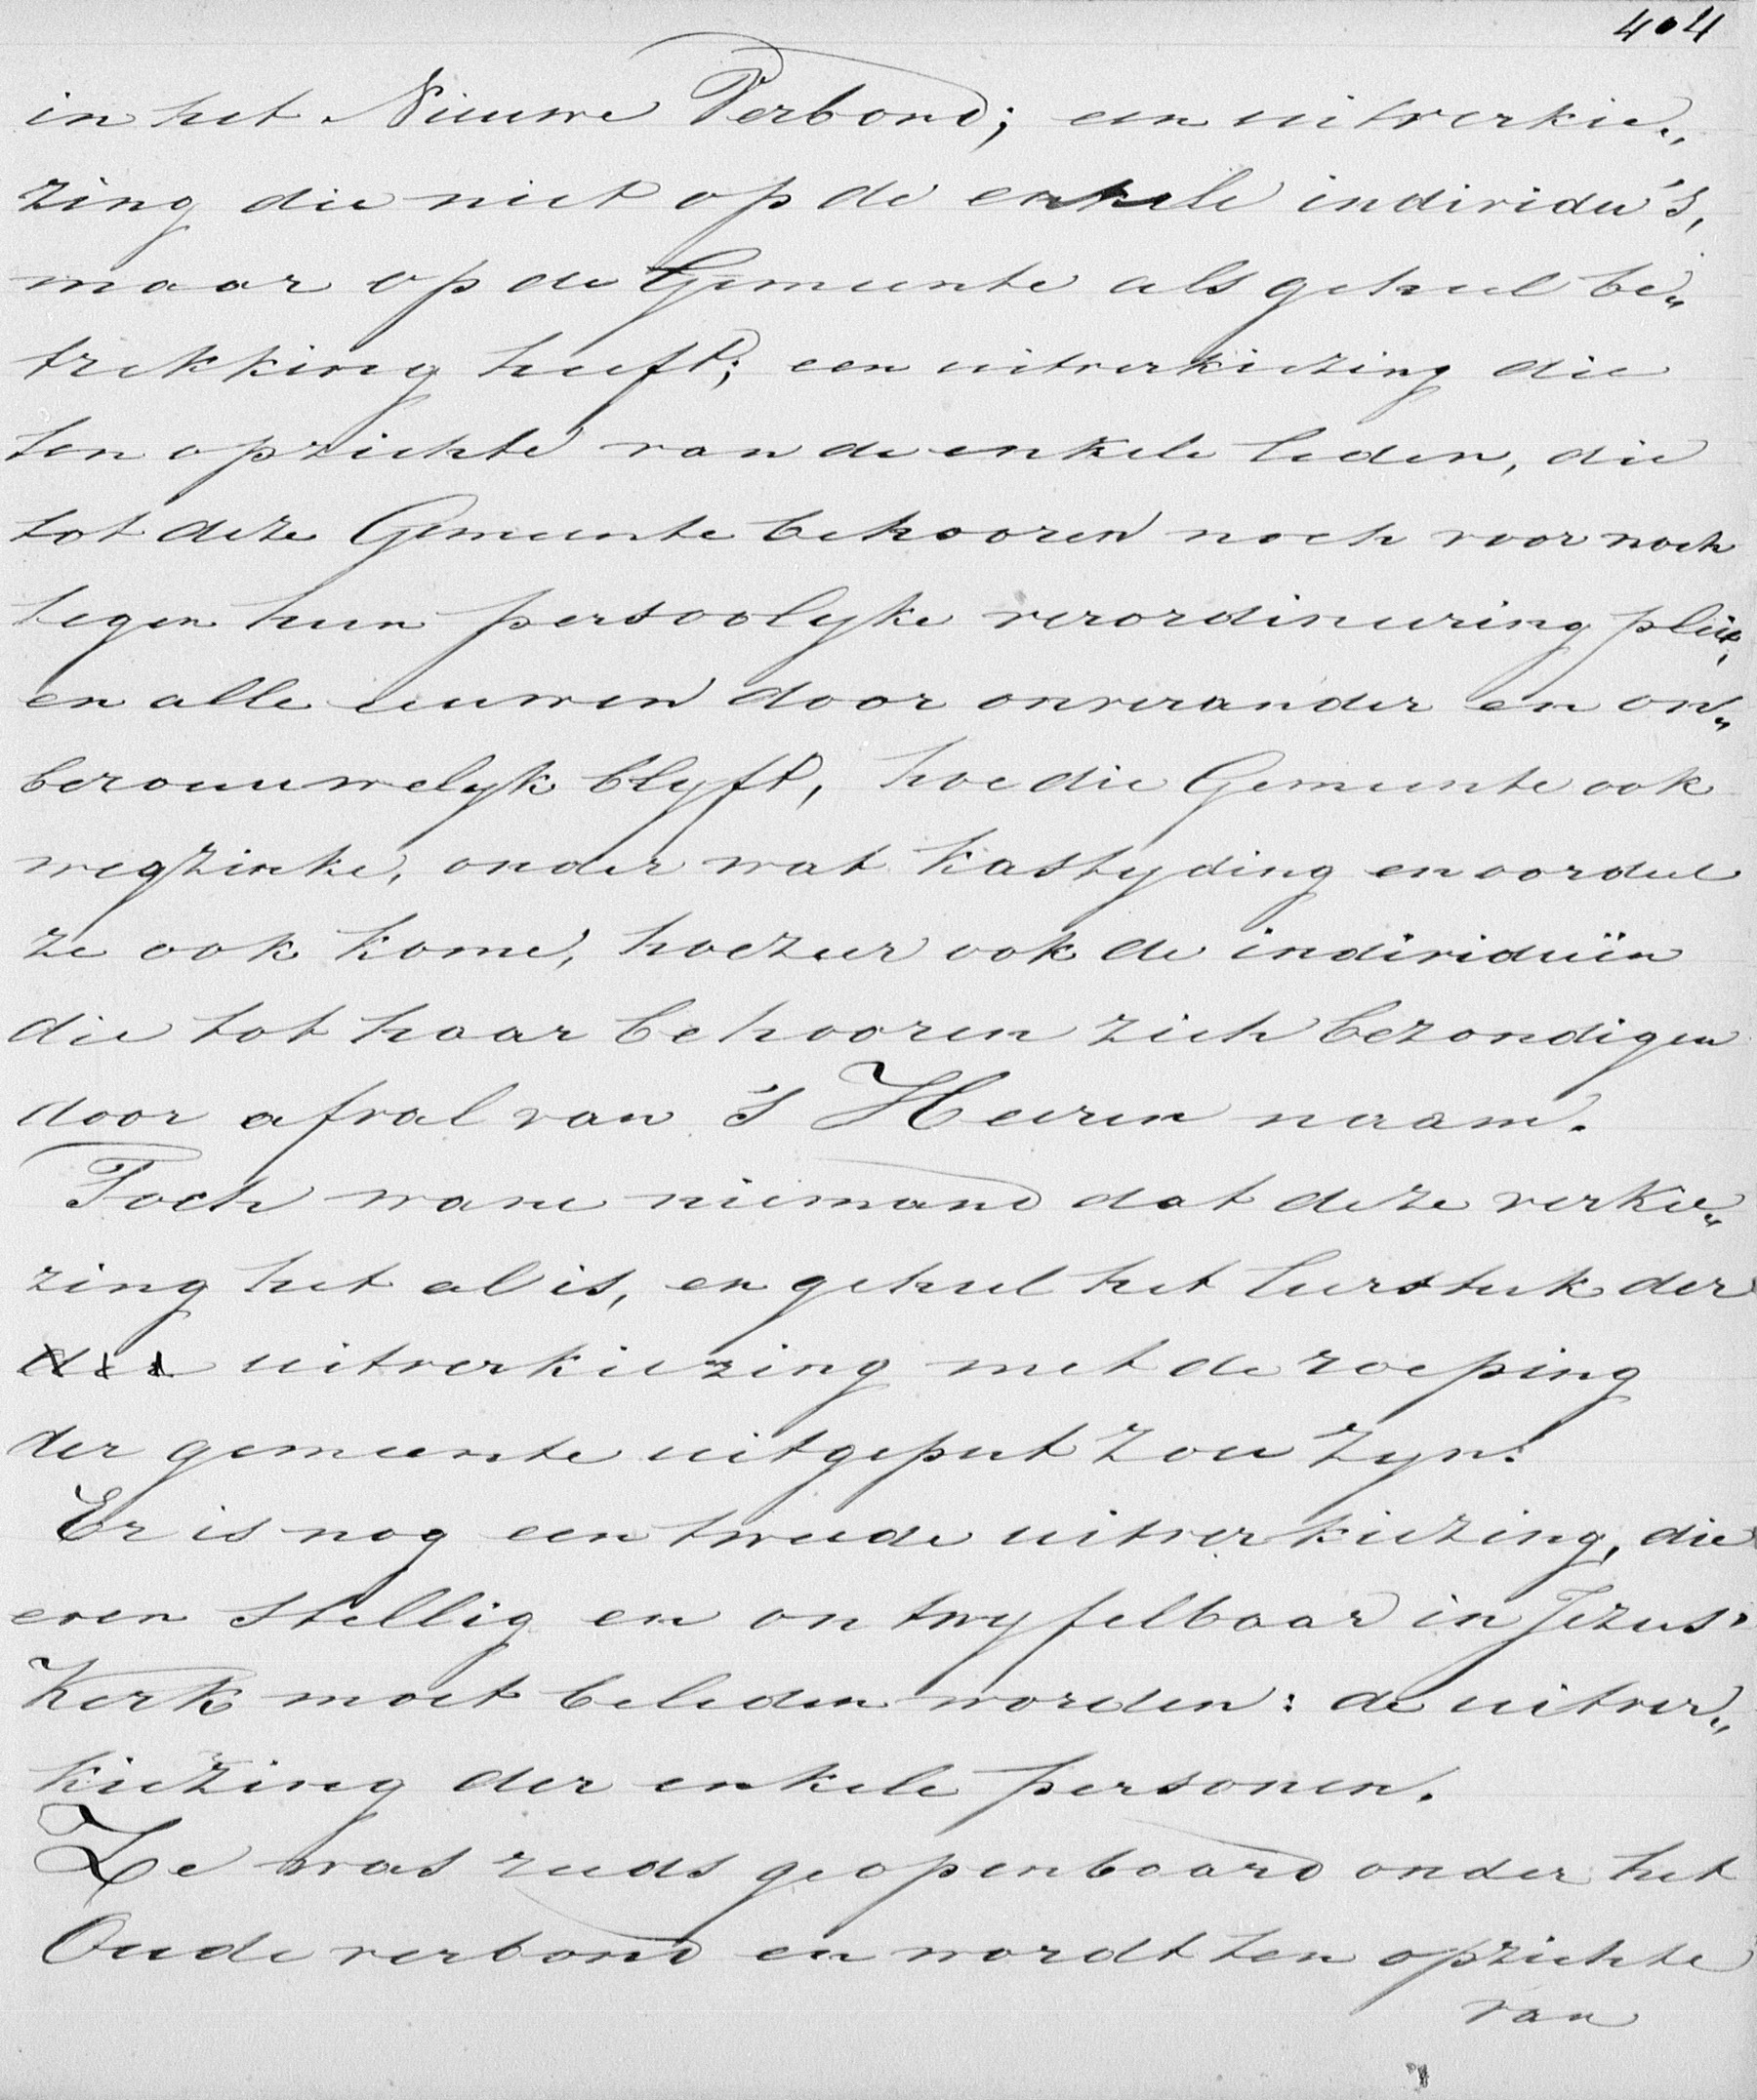 404
in het Nieuwe Verbond; een uitverkie„
zing die niet op de enkele individu's,
maar op de Gemeente als geheel be„
trekking heeft; een uitverkiezing die
ten opzichte van de enkele leden, die
tot deze Gemeente behooren noch voor noch
tegen hun persoolyke verordineering pleit,
en alle eeuwen door onverander en on„
berouwelyk blyft, hoe die Gemeente ook
wegzinke, onder wat kastyding en oordeel
ze ook kome, hoezeer ook de individuën
die tot haar behooren zich bezondigen
door afval van 's Heeren naam.
Toch wane niemand dat deze verkie„
zing het al is, en geheel het leerstuk der
uitverkiezing met de roeping
der gemeente uitgeput zou zyn.
Er is nog een tweede uitverkiezing, die
even stellig en ontwyfelbaar in Jezus'
Kerk moet beleden worden: de uitver„
kiezing der enkele personen.
Ze was reeds geopenbaard onder het
Oude verbond en wordt ten opzichte
van